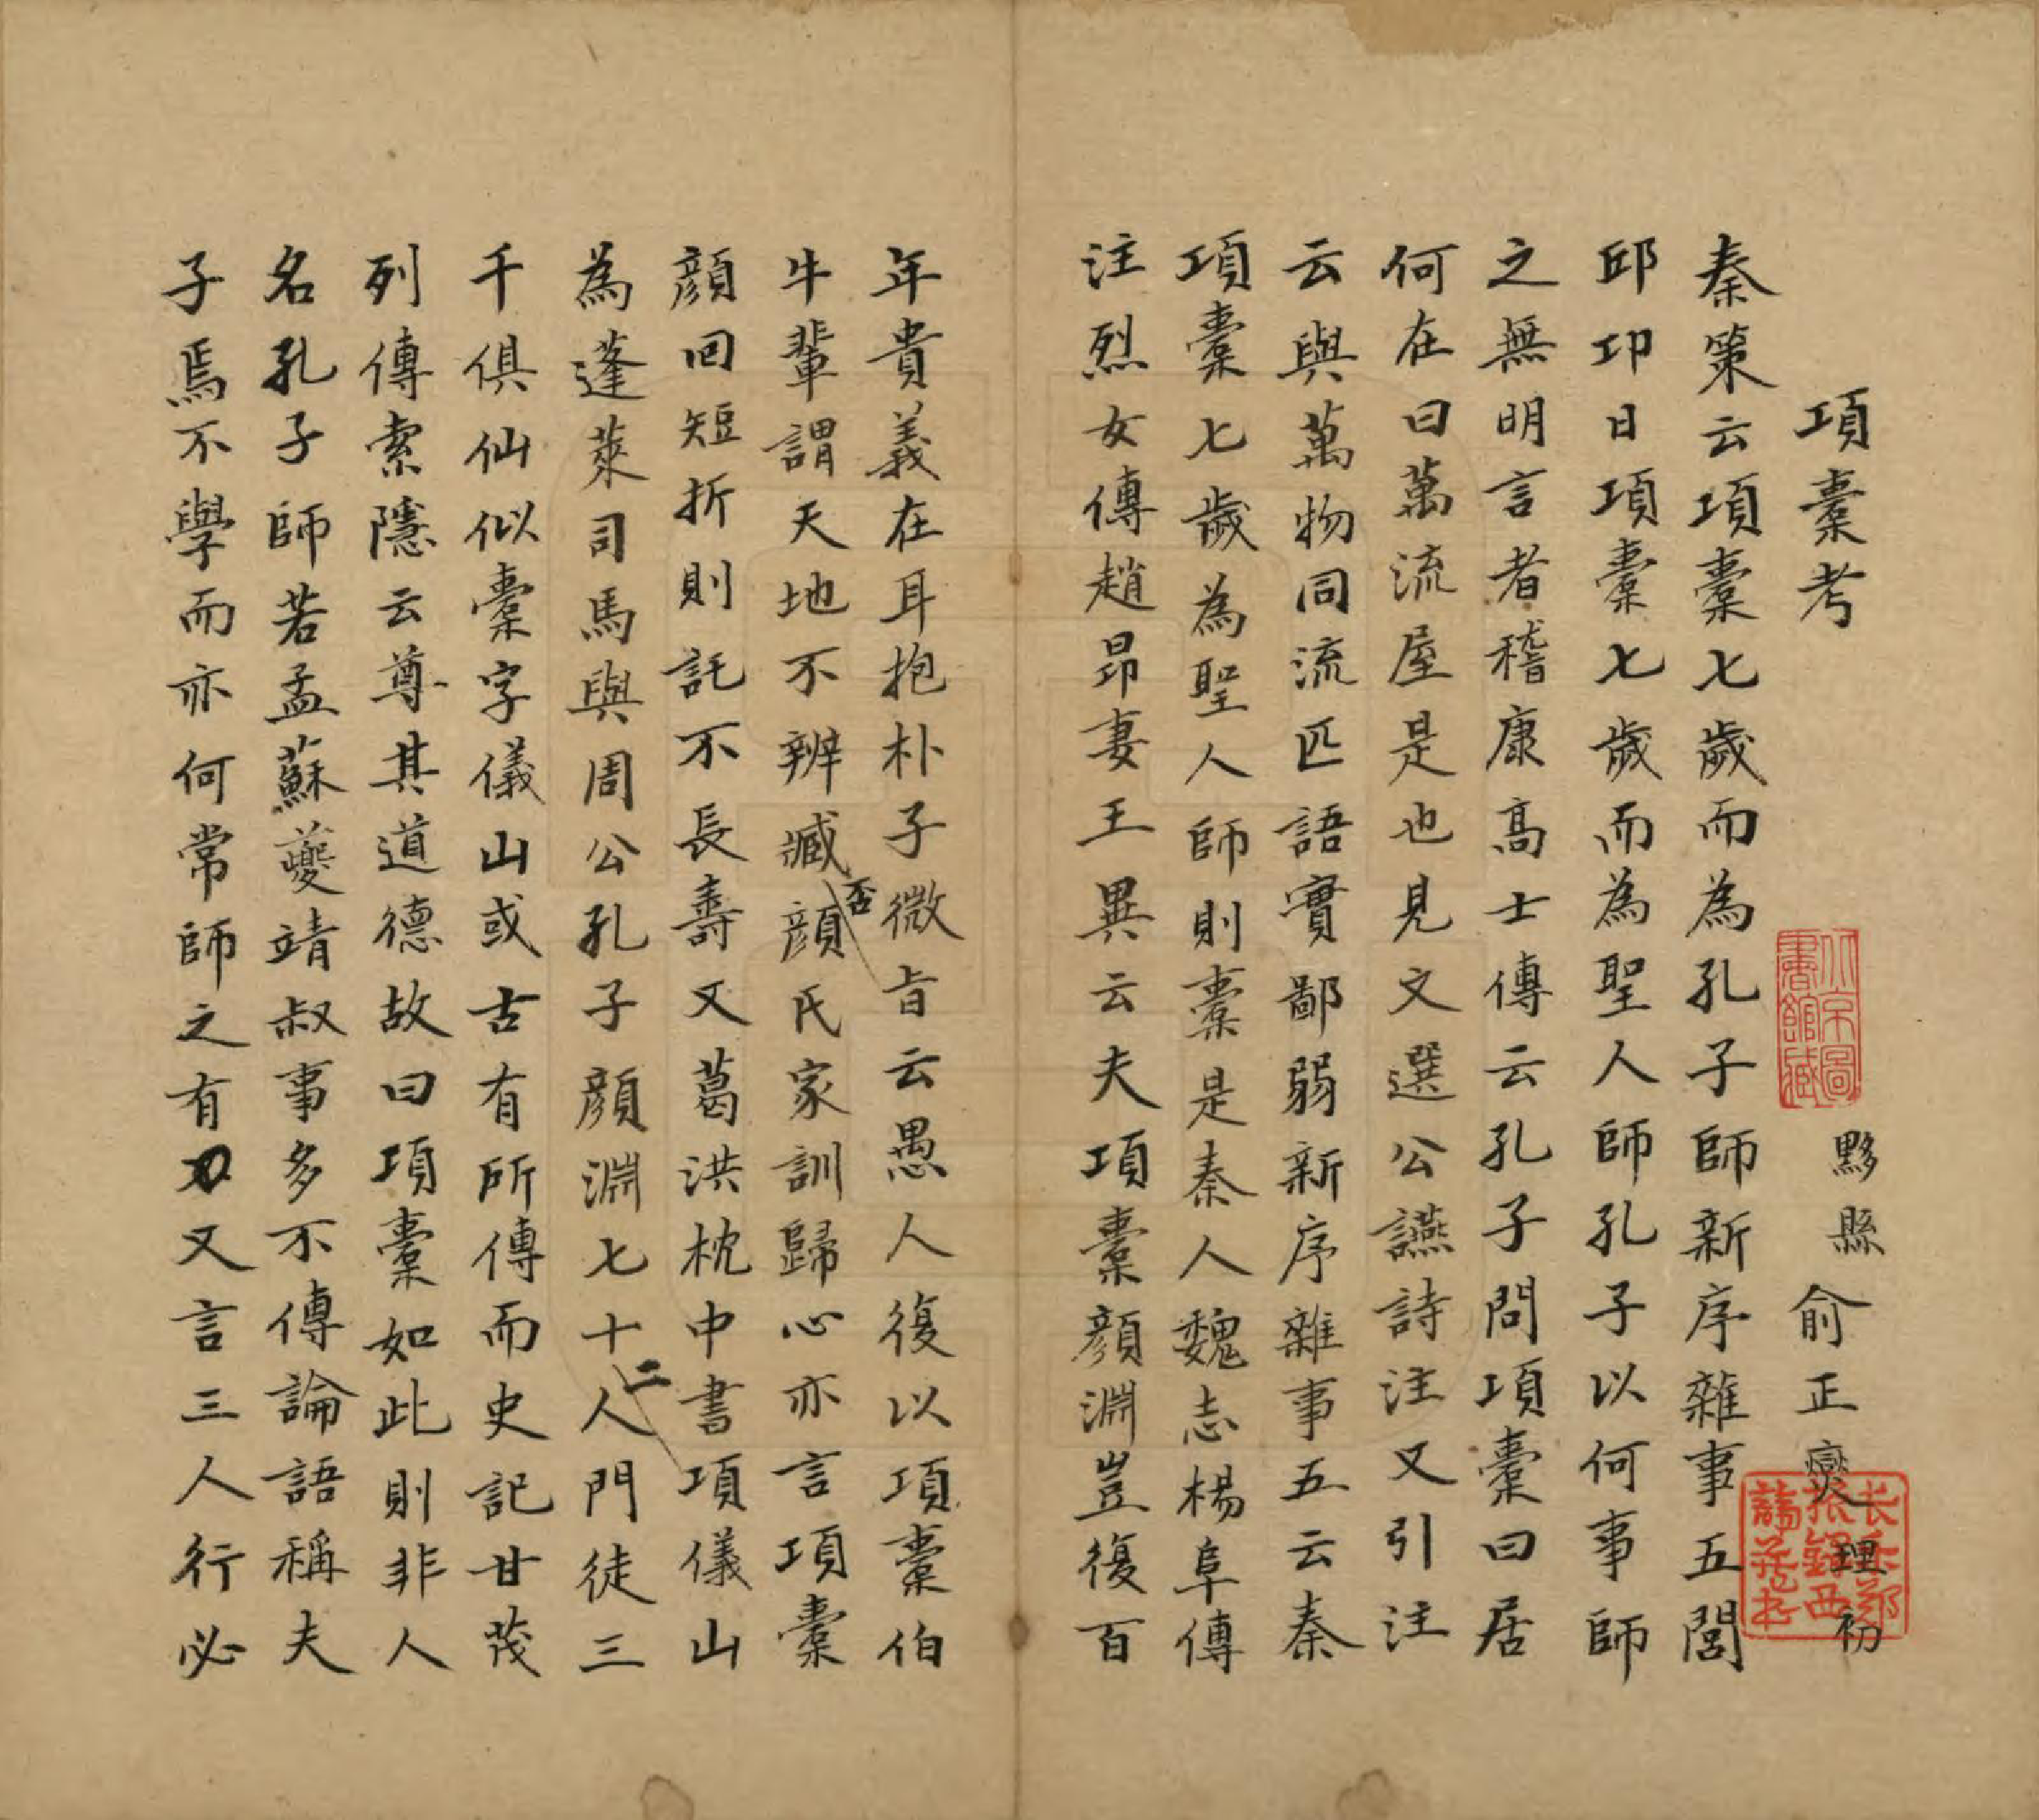 項橐考
黟縣俞正燮理初
秦策云項橐七歲而為孔子師新序雜事五閭
邱卭日項橐七歲而為聖人師孔子以何事師
之無明言者稽康高士傳云孔子問項橐曰居
何在曰萬流屋是也見文選公讌詩注又引注
云與萬物同流匹語實鄙弱新序雜事五云秦
項橐七歲為聖人師則橐是秦人魏志楊阜傳
注烈女傳趙昂妻王異云夫項橐顏淵豈復百
年貴義在耳抱朴子微旨云愚人復以項橐伯
牛輩謂天地不辨臧否顏氏家訓歸心亦言項橐
顏回短折則託不長壽又葛洪枕中書項儀山
為蓬萊司馬與周公孔子顏淵七十二人門徒三
千俱仙似橐字儀山或古有所傳而史記甘茂
列傳索隱云尊其道德故曰項橐如此則非人
名孔子師若孟蘇夔靖叔事多不傳論語稱夫
子焉不學而亦何常師之有又言三人行必
北京圖書館藏
长乐郑振鐸西諦藏书